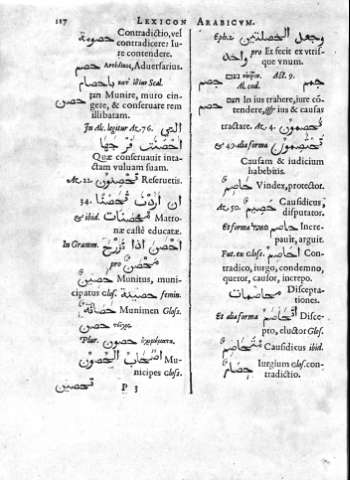 117 LEXICON ARABICVM.
Contradictio, vel
contradicere: Iu-
re contendere.
Aduersarius.
Munire, muro cin-
gere, & conseruare rem
illibatam.
In Alc. legitur Az. 76. التي
احصنت فرجها
Quæ conseruauit inta-
ctam vuluam suam.
Az. 22. تحصنون Reseruetis.
ان اردن تحصنا 34.
& ibid. محصنات Matro-
næ castè educatæ.
In Gramm. احصن اذا تزوج
pro محصن
حصين Munitus, muni-
cipatus Glos. حصينة femin.
حصانة Munimen Gloss.
حصن
Plur. حصون
اصحاب الحصون Mu-
nicipes Gloss.
P 3
تحصين
وجعل الخصلتين Eph. 2
واحده pro Et fecit ex vtris-
que vnum.
خصم Act. 9.
Al. cod.
In ius trahere, iure cō-
tendere, & ius & causas
tractare. Az. 4. تخصمون
& 47. alia forma تختصمون
Causam & iudicium
habebitis.
خاصم Vindex, protector.
Az. 50. خصيم Causidicus,
disputator.
Et alia forma خاصم Incre-
pauit, arguit.
Fut. ex Gloss. اخاصم Con-
tradico, iurgo, condemno,
queror, causor, increpo.
مخاصمات Discepta-
tiones.
Et alia forma اتخاصم Disce-
pto, eluctor Glos.
متخاصم Causidicus ibid.
خصام Iurgium Gloss. con-
tradictio.